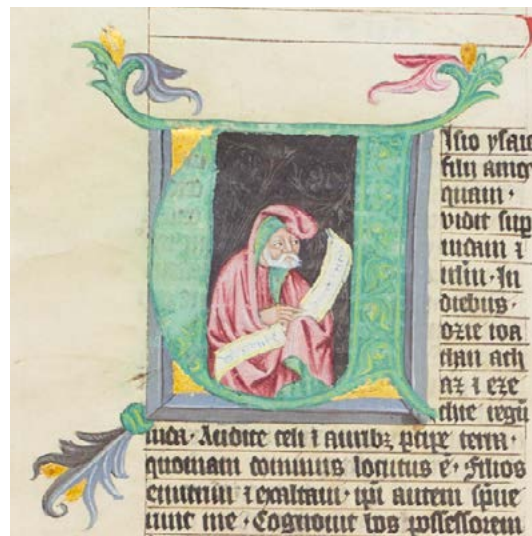 Visio ysaie
filii amos
quam ·
vidit sup
iudam ⁊
irlm̄ · In
diebus ·
ozie ioa
than ach
az ⁊ eze
chie regū
iuda · Audite celi ⁊ auribꝫ ꝑcipe terra ·
quoniam dominus locutus ē · Filios
enutriui ⁊ exaltaui · ip̄i autem sp̄ue
runt me · Cognouit bos possessorem